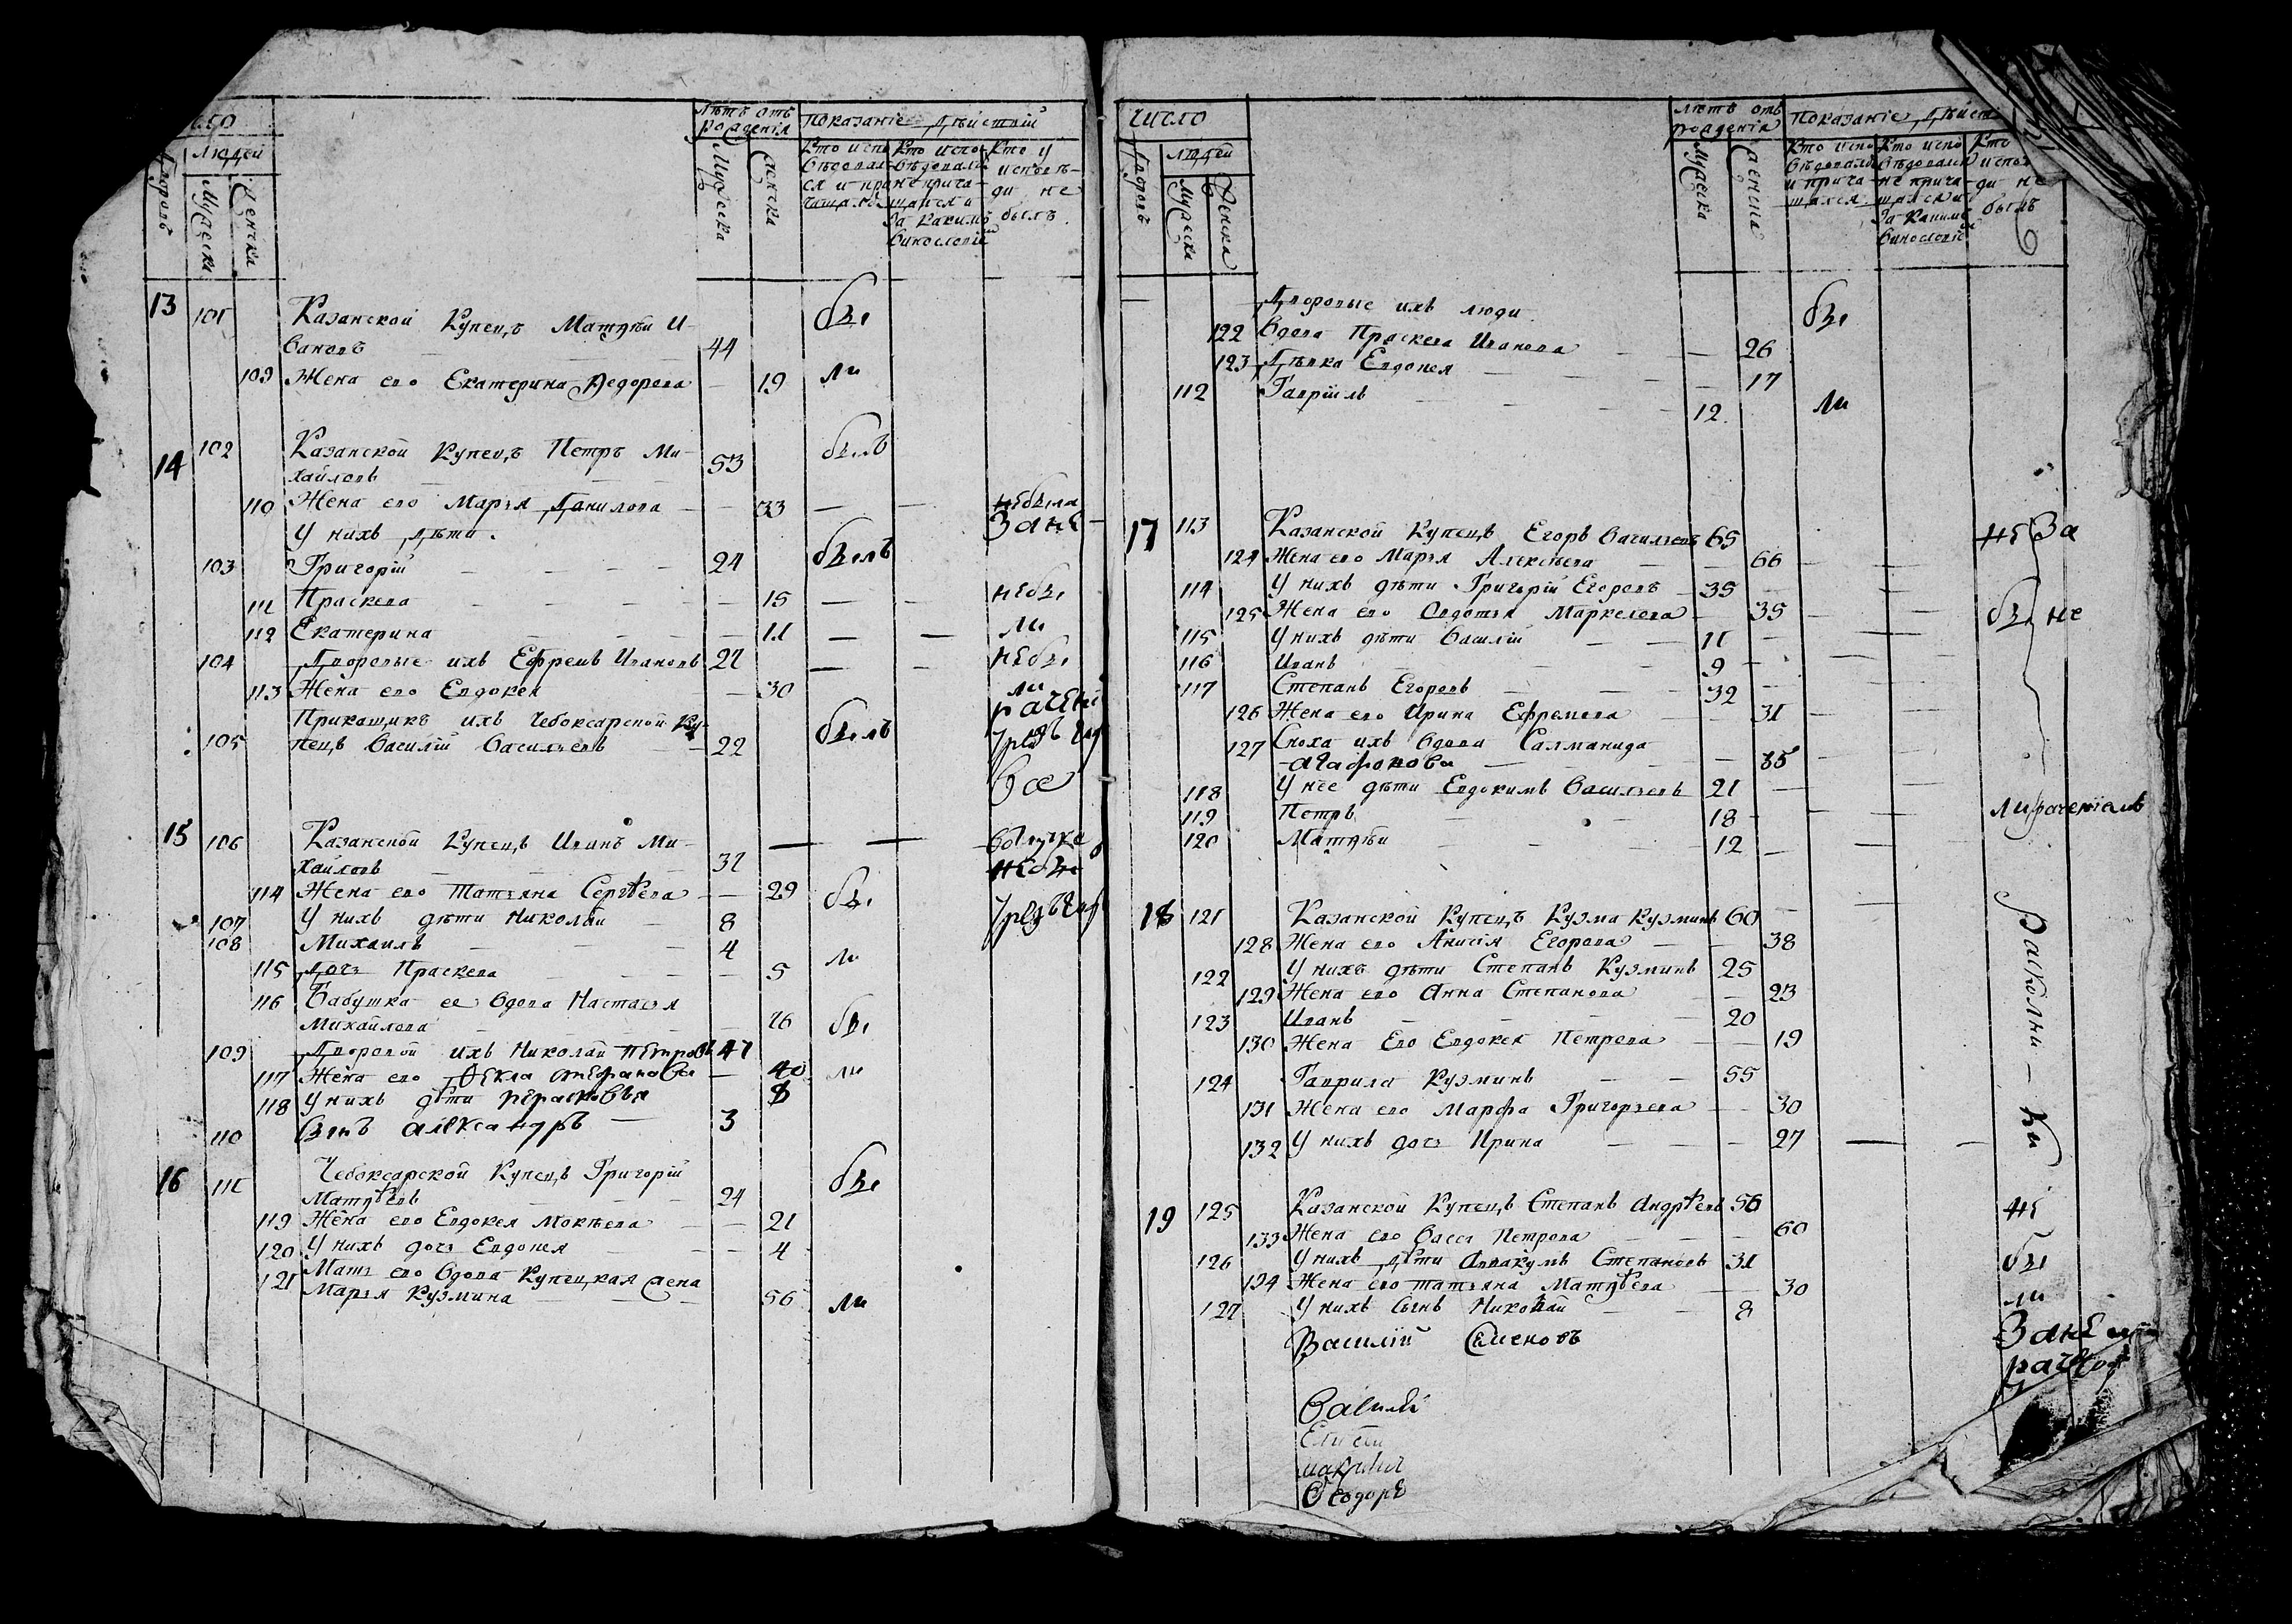 людей
дворовъ
мужеска
женска
лѣтъ отъ
рождения
мужеска
женска
показаніе дѣйствій
кто испо-
вѣдовал-
ся и при-
чащался
кто испо-
вѣдовался
не прича-
щался и
за какимъ
винословіем
кто у
исповѣ-
ди не
былъ
13 101 Казанской Купецъ Матвѣй И-
вановъ 44 бы
109 Жена его Екатерина Федорова 19 ли
14 102 Казанской Купецъ Петръ Ми-
хайловъ 53 былъ
110 Жена его Марья Данилова 33 небыла
У нихъ дѣти зане-
103 Григорій 24 былъ
111 Праскева 15 небы
112 Екатерина 11 ли
104 Дворовые ихъ Ефремъ Ивановъ 27 небы
113 Жена его Евдокея 30 ли
Прикащикъ ихъ Чебоксарской Ку-
105 пецъ Василій Васильевъ 22 былъ
15 106 Казанской Купецъ Иванъ Ми-
хайловъ 37 небы
114 Жена его Татьяна Сергѣева 29 бы
107 У нихъ дѣти Николай 8
108 Михаилъ 4
115 Дочь Праскева 5 ли
116 Бабушка ее вдова Настасья
Михайлова 76 бы
109 Дворовой ихъ Николай Петровъ 47
117 Жена его Фекла Стефанова 40 ли
118 У нихъ дѣти 8
110 Сынъ Александръ 3
16 111 Чебоксарской Купецъ Григорій
Матвѣевъ 24 бы
119 Жена его Евдокея Мокѣева 21
120 У нихъ дочь Евдокея 4
121 Мать его вдова Купецкая жена
Марья Кузмина 56 ли
число
людей
дворовъ
мужеска
женска
лѣтъ отъ
рождения
мужеска
женска
показаніе дѣйст
кто испо-
вѣдовался
и прича-
щался
кто испо
вѣдовался
не прича-
щался и
за какимъ
винословіем
кто
испов
ди не
былъ
Дворовые ихъ люди бы
122 Вдова Праскева Иванова 26
123 Дѣвка Евдокея 17
112 Гавріилъ 12 ли
17 113 Казанской Купецъ Егоръ Васильевъ 65 не за
124 Жена его Марья Алексѣева 66
114 У нихъ дѣти Григорій Егоровъ 35
125 Жена его Авдотья Маркелова 35 бы не
115 У нихъ дѣти Василій 11
116 Иванъ 9
117 Степанъ Егоровъ 32
126 Жена его Ирина Ефремова 31
127 Сноха ихъ вдова Салманида
Агафонова 35
118 У нее дѣти Евдокимъ Васильевъ 21
119 Петръ 18 ли рачениемъ
120 Матвѣй 12
18 121 Казанской Купецъ Кузма Кузминъ 60
128 Жена его Анисія Егорова 38
122 У нихъ дѣти Степанъ Кузминъ 25
129 Жена его Анна Степанова 23
123 Иванъ 20
130 Жена его Евдокея Петрова 19
124 Гаврила Кузминъ 55
131 Жена его Марфа Григорьева 30
132 У нихъ дочь Ирина 27
Расколни-ки
19 125 Казанской Купецъ Степанъ Андрѣевъ 56 не
133 Жена его Васса Петрова 60
126 У нихъ дѣти Аввакумъ Степановъ 31 бы
134 Жена его Татьяна Матвѣева 30
127 У нихъ сынъ Николай 8 ли
Василій Семеновъ
Васили
Феодоръ